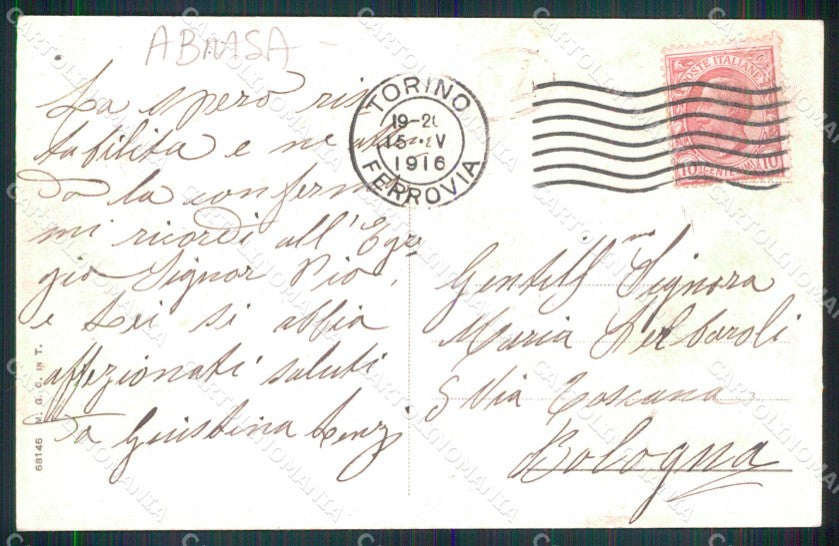 ABRASA
La spero ris
tabilita e ne atten
do la conferma
mi ricordi all'Egre
gio Signor Pio,
e Lei si abbia
affezionati saluti
Da Giustina
TORINO
19-20
15 V
1916
FERROVIA
POSTE ITALIANE
10 CENTESIMI 10
Gentilma Signora
Maria
Via Toscana
Bologna
68146 M. G. C. IN T.
CARTOLINOMANIA